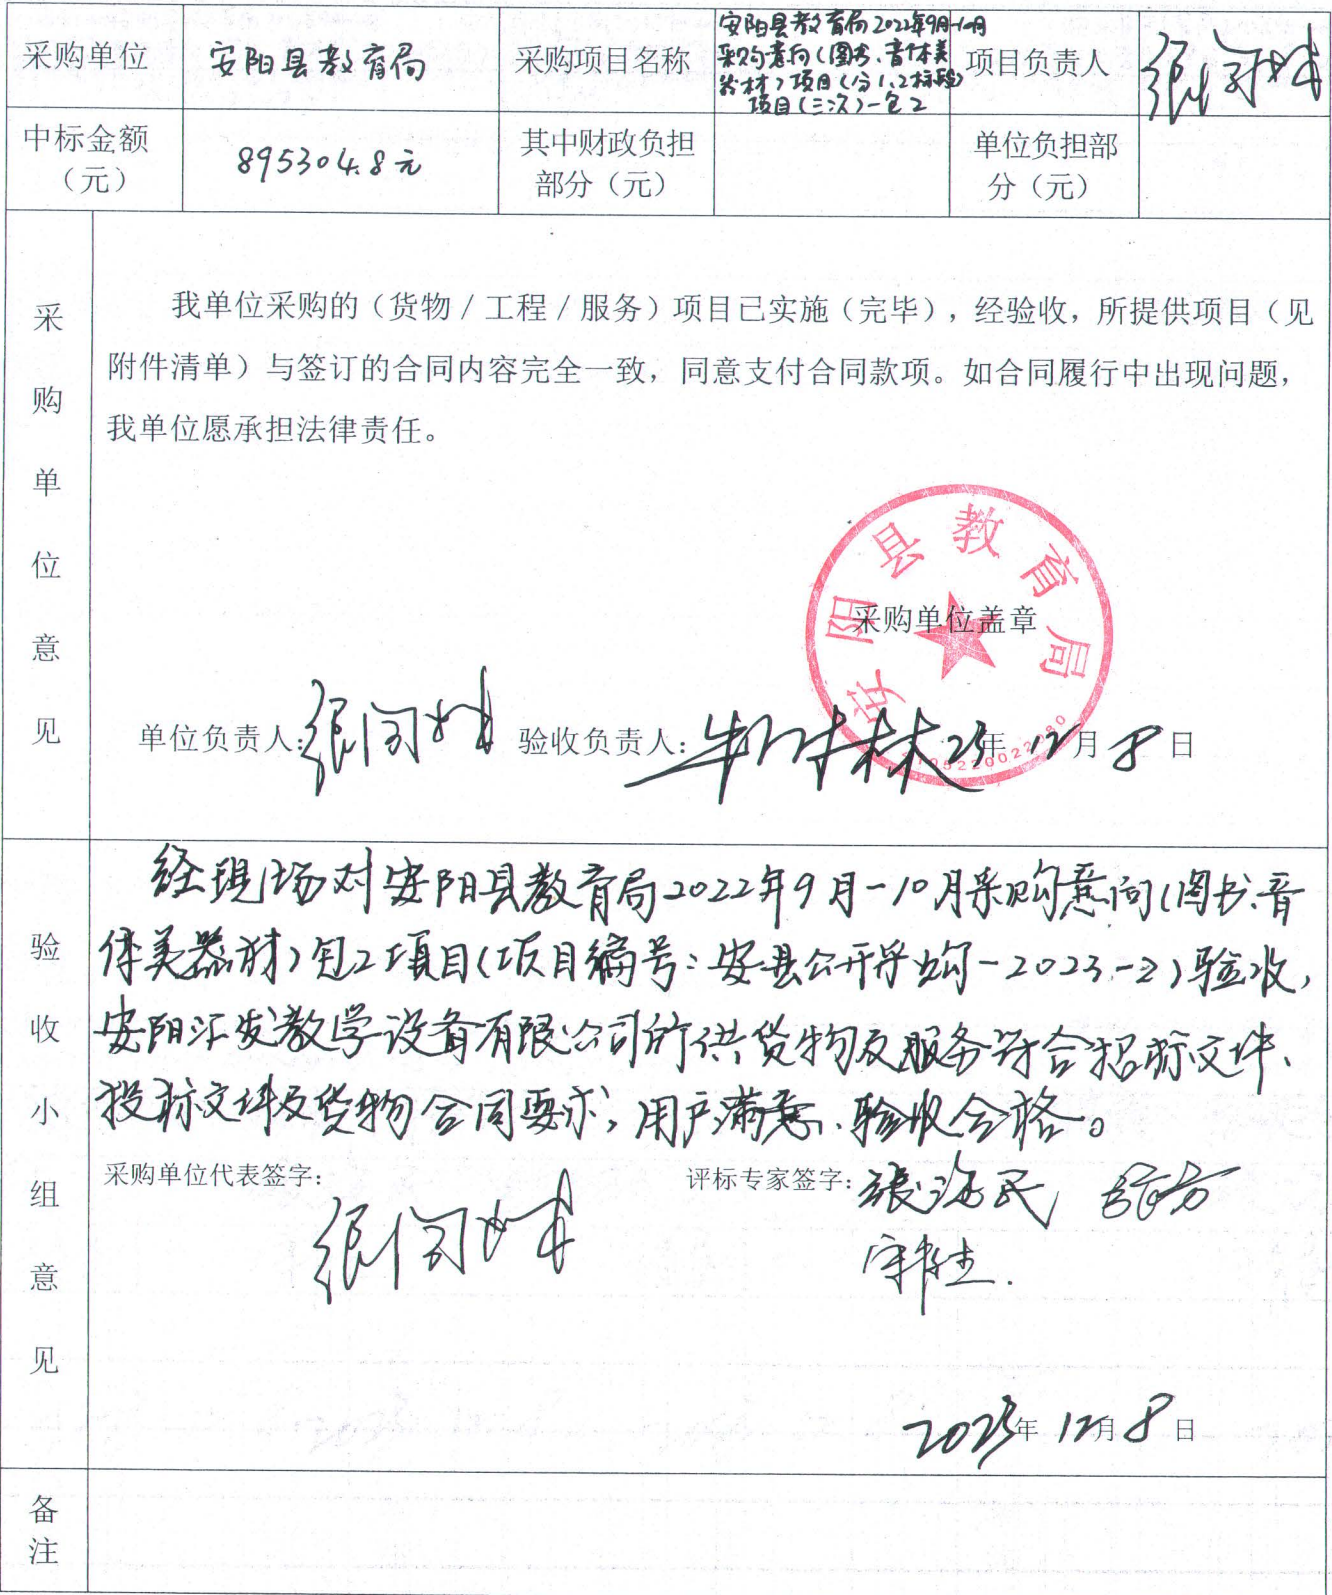 采购单位 安阳县教育局 采购项目名称 安阳县教育局2022年9月-10月 项目负责人
采购意向(图书、音体美
器材)项目(分1、2标段)
项目(三次)-包2
中标金额 895304.8元 其中财政负担 单位负担部
(元) 部分(元) 分(元)
采购单位意见
我单位采购的(货物/工程/服务)项目已实施(完毕),经验收,所提供项目(见
附件清单)与签订的合同内容完全一致,同意支付合同款项。如合同履行中出现问题,
我单位愿承担法律责任。
安阳县教育局
采购单位盖章
单位负责人: 验收负责人: 23年12月8日
验收小组意见
经现场对安阳县教育局2022年9月-10月采购意向(图书、音
体美器材)包2项目(项目编号:安县公开采购-2023-2)验收,
安阳汇发教学设备有限公司所供货物及服务符合招标文件、
投标文件及货物合同要求,用户满意、验收合格。
采购单位代表签字: 评标专家签字:
2023年12月8日
备注